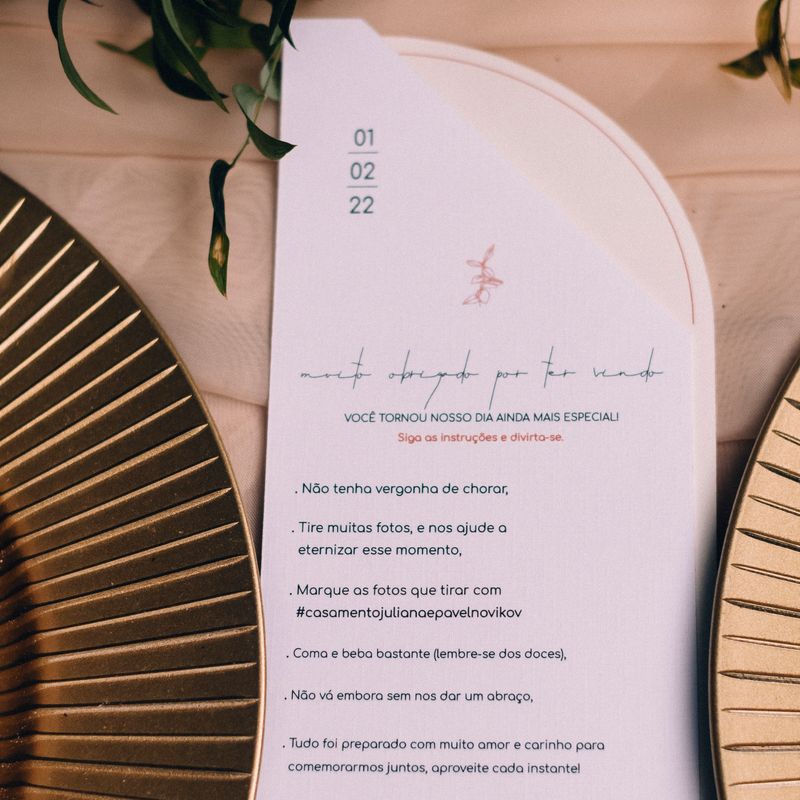 01
02
22
muito obrigado por ter vindo
VOCÊ TORNOU NOSSO DIA AINDA MAIS ESPECIAL!
Siga as instruções e divirta-se.
. Não tenha vergonha de chorar,
. Tire muitas fotos, e nos ajude a
eternizar esse momento,
. Marque as fotos que tirar com
#casamentojulianaepavelnovikov
. Coma e beba bastante (lembre-se dos doces),
. Não vá embora sem nos dar um abraço,
. Tudo foi preparado com muito amor e carinho para
comemorarmos juntos, aproveite cada instante!